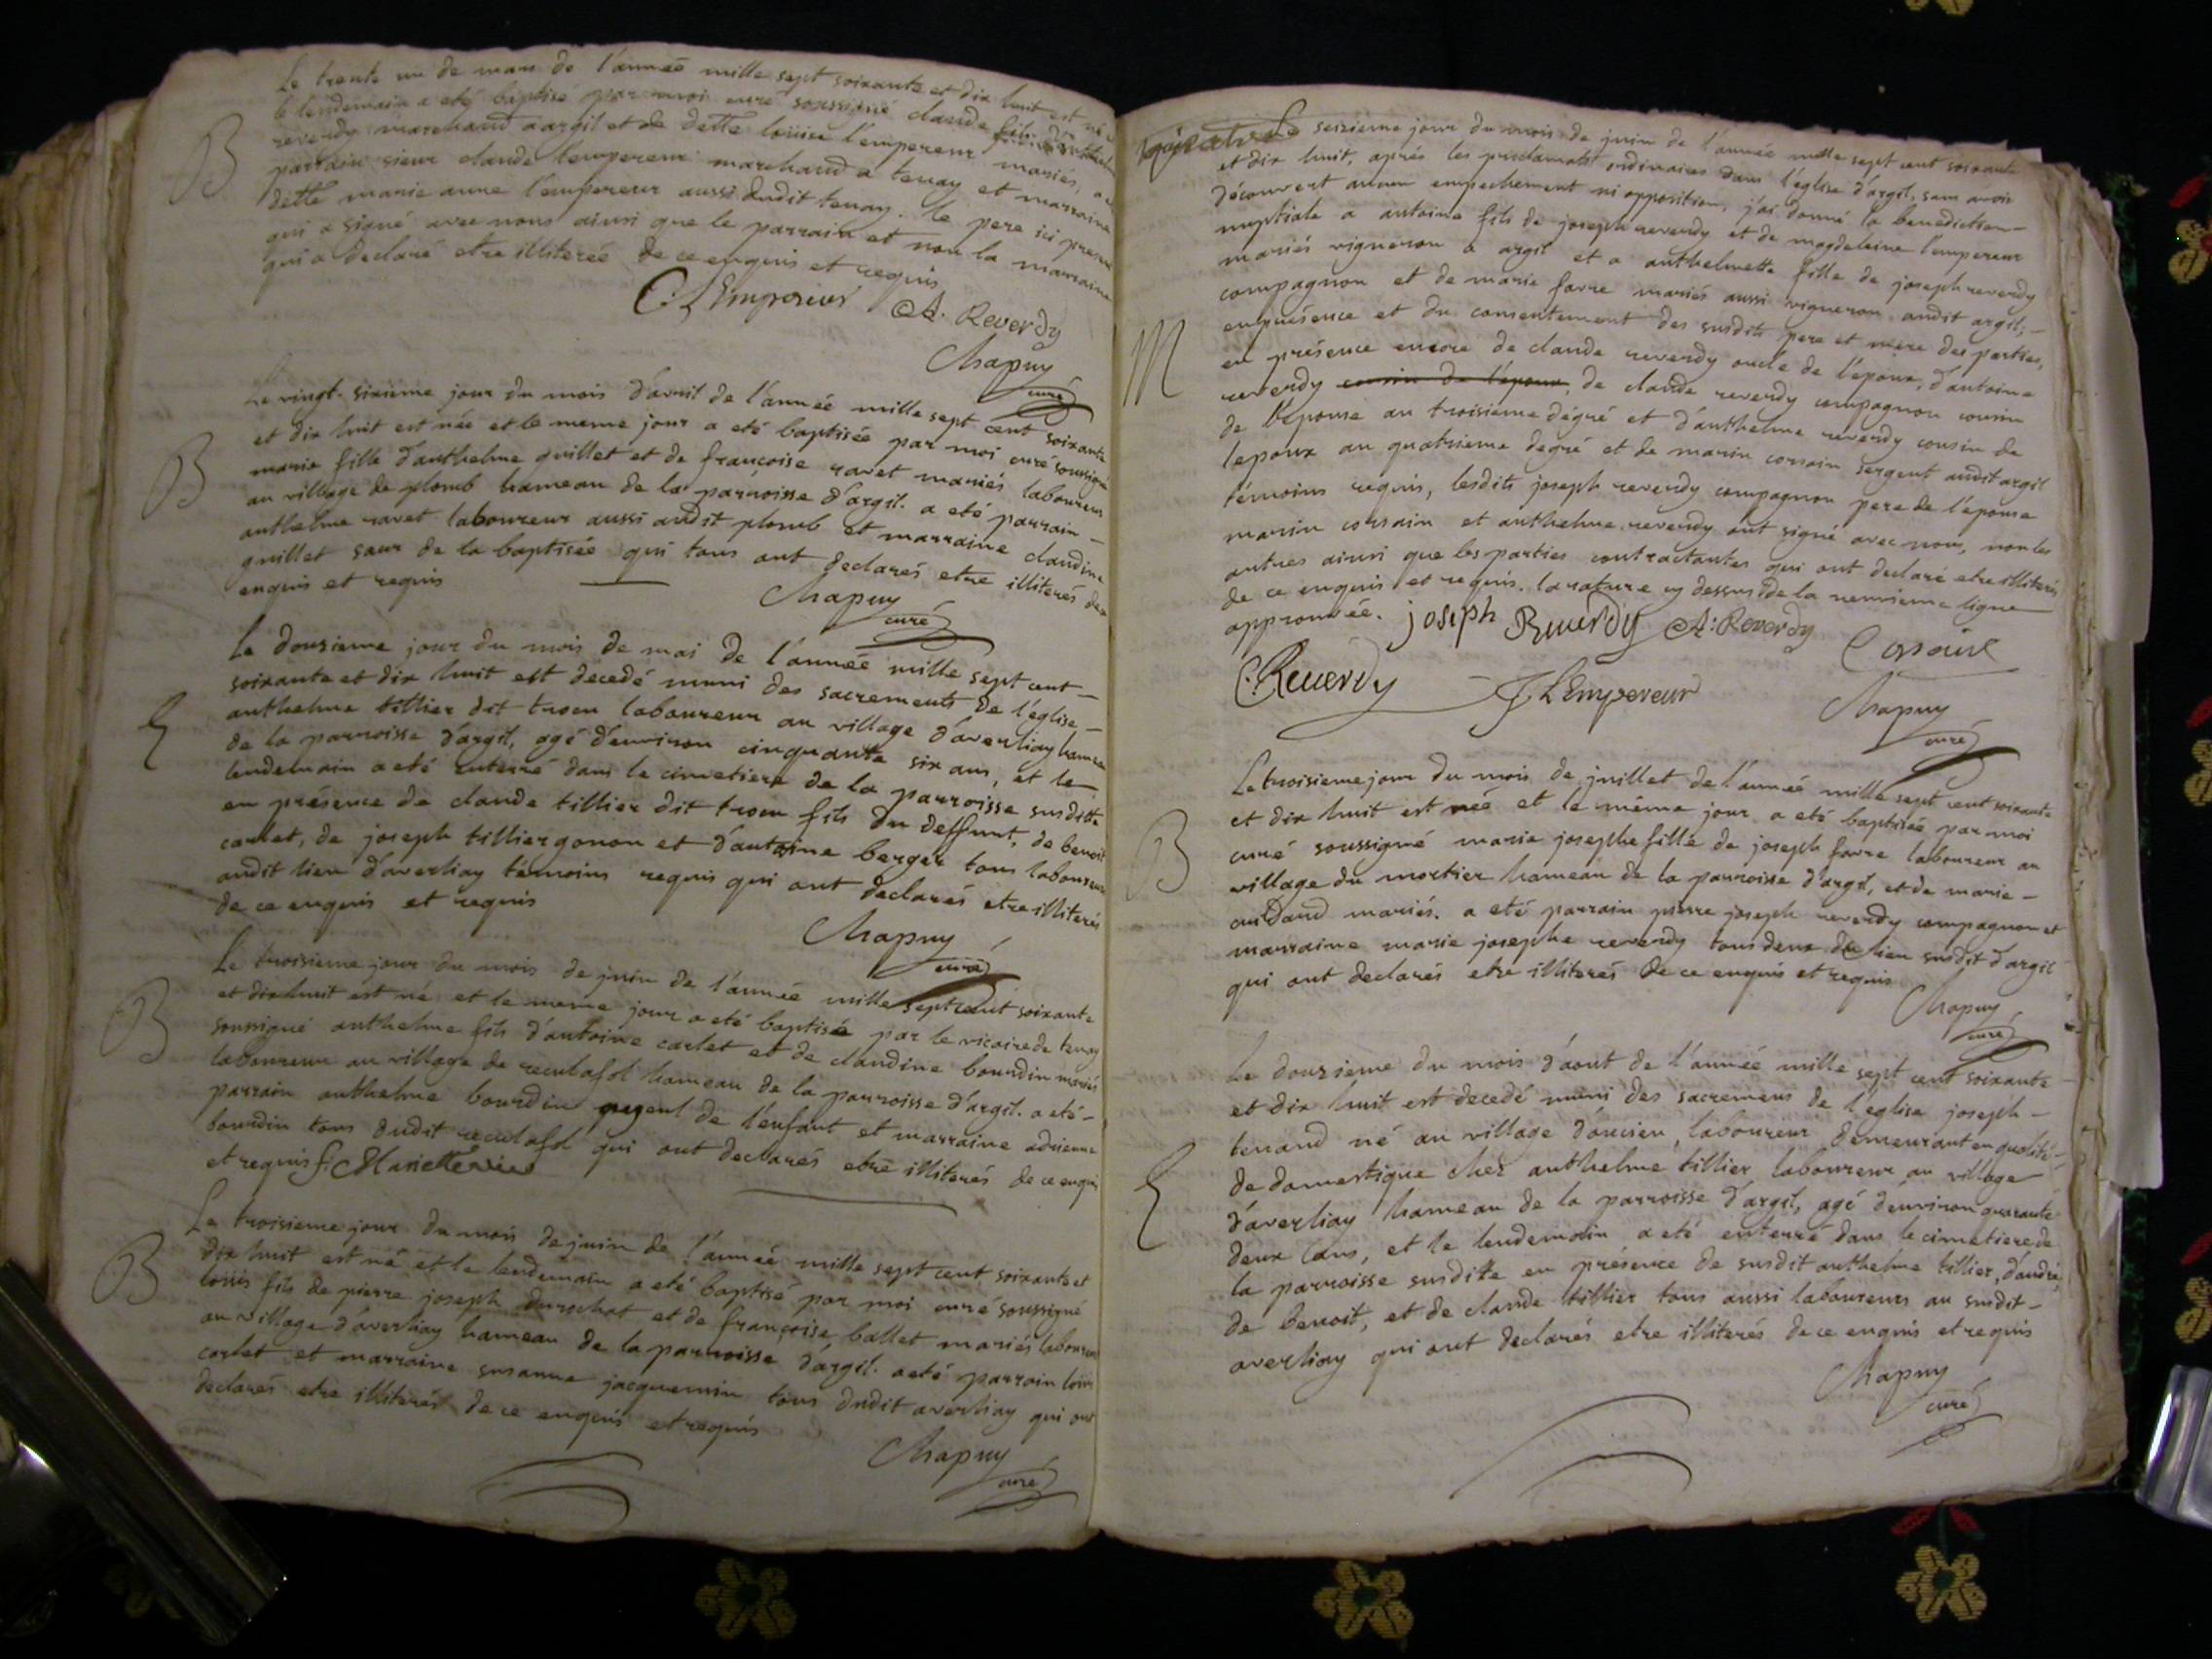 Le trente un de mars de l'année mille sept soixante et dix huit est né et
le lendemain a eté baptisé par moi curé soussigné claude fils
reverdy marchand a argil et de dette louise l'empereur mariés, a
parrain sieur claude l'empereur marchand a tenay et marraine
dette marie anne l'empereur aussi dudit tenay. le pere ici present
qui a signé avec nous ainsi que le parrain et non la marraine
qui a declaré etre illiterée de ce enquis et requis
C. LEmpereur A. Reverdy
Chapuy
curé
B
Le vingt-sixieme jour du mois d'avril de l'année mille sept cent soixante
et dix huit est née et le meme jour a eté baptisée par moi curé soussigné
marie fille d'anthelme guillet et de francoise ravet mariés laboureur
au village de plomb hameau de la parroisse d'argil. a eté parrain -
anthelme ravet laboureur aussi audit plomb et marraine claudine
guillet sœur de la baptisée qui tous ont declarés etre illiterés de ce
enquis et requis
Chapuy
curé
B
Le douzieme jour du mois de mai de l'année mille sept cent -
soixante et dix huit est decedé muni des sacrements de l'eglise -
anthelme tillier dit laboureur au village d'averliay hameau
de la parroisse d'argil, agé d'environ cinquante six ans, et le -
lendemain a eté enterré dans le cimetiere de la parroisse susditte
en présence de claude tillier dit fils du deffunt, de benoit
carlet, de joseph tillier gonon et d'antoine berger tous laboureurs
audit lieu d'averliay témoins requis qui ont declarés etre illiterés
de ce enquis et requis
Chapuy
curé
Le troisieme jour du mois de juin de l'année mille sept cent soixante
et dix huit est né et le meme jour a eté baptisé par le vicaire de tenay
soussigné anthelme fils d'antoine carlet et de claudine bourdin mariés
laboureur au village de reculafol hameau de la parroisse d'argil. a eté -
parrain anthelme bourdin ayeul de l'enfant et marraine adrienne
bourdin tous dudit reculafol qui ont declarés etre illiterés de ce enquis
et requis
B
Le troisieme jour du mois de juin de l'année mille sept cent soixante et
dix huit est né et le lendemain a eté baptisé par moi curé soussigné
louis fils de pierre joseph durochat et de françoise ballet mariés laboureur
au village d'averliay hameau de la parroisse d'argil. a eté parrain louis
carlet et marraine susanne jacquemin tous dudit averliay qui ont
declarés etre illiterés de ce enquis et requis
B
Chapuy
curé
Le seizieme jour du mois de juin de l'année mille sept cent soixante
et dix huit, aprés les proclamats ordinaires dans l'église d'argil, sans avoir
découvert aucun empechement ni opposition, j'ai donné la benediction -
nuptiale a antoine fils de joseph reverdy et de magdeleine l'empereur
mariés vigneron a argil et a anthelmette fille de joseph reverdy
compagnon et de marie favre mariés aussi vigneron audit argil; -
en présence et du consentement des susdits pere et mere des parties,
en présence encore de claude reverdy oncle de l'epoux, d'antoine
reverdy cousin de l'epoux, de claude reverdy compagnon cousin
de l'epouse au troisieme dégré et d'anthelme reverdy cousin de
lepoux au quatrieme degré et de marin corsain sergent audit argil
témoins requis, lesdits joseph reverdy compagnon pere de l'épouse
marin corsain et anthelme reverdy ont signé avec nous, non les
autres ainsi que les parties contractantes qui ont declaré etre illiterés
de ce enquis et requis. la rature cy dessus de la neuvieme ligne
approuvée. joseph Reuerdy A. Reverdy Corsain
C. Reuerdy J LEmpereur
Chapuy
curé
M
Le troisieme jour du mois de juillet de l'année mille sept cent soixante
et dix huit est née et le même jour a eté baptisée par moi
curé soussigné marie josephe fille de joseph favre laboureur au
village du mortier hameau de la parroisse d'argil, et de marie -
mariés. a eté parrain pierre joseph reverdy compagnon et
marraine marie josephe reverdy tous deux du lieu susdit d'argil
qui ont declarés etre illiterés de ce enquis et requis
B
Chapuy
curé
Le douzieme du mois d'aout de l'année mille sept cent soixante
et dix huit est decedé muni des sacremens de l'église joseph -
tenand né au village d'oncieu, laboureur demeurant en qualité -
de domestique chez anthelme tillier laboureur au village
d'averliay hameau de la parroisse d'argil, agé d'environ quarante
deux ans, et le lendemain a eté enterré dans le cimetiere de
la parroisse susditte en présence de susdit anthelme tillier, d'andré,
de benoit, et de claude tillier tous aussi laboureurs au susdit -
averliay qui ont declarés etre illiterés de ce enquis et requis
Chapuy
curé